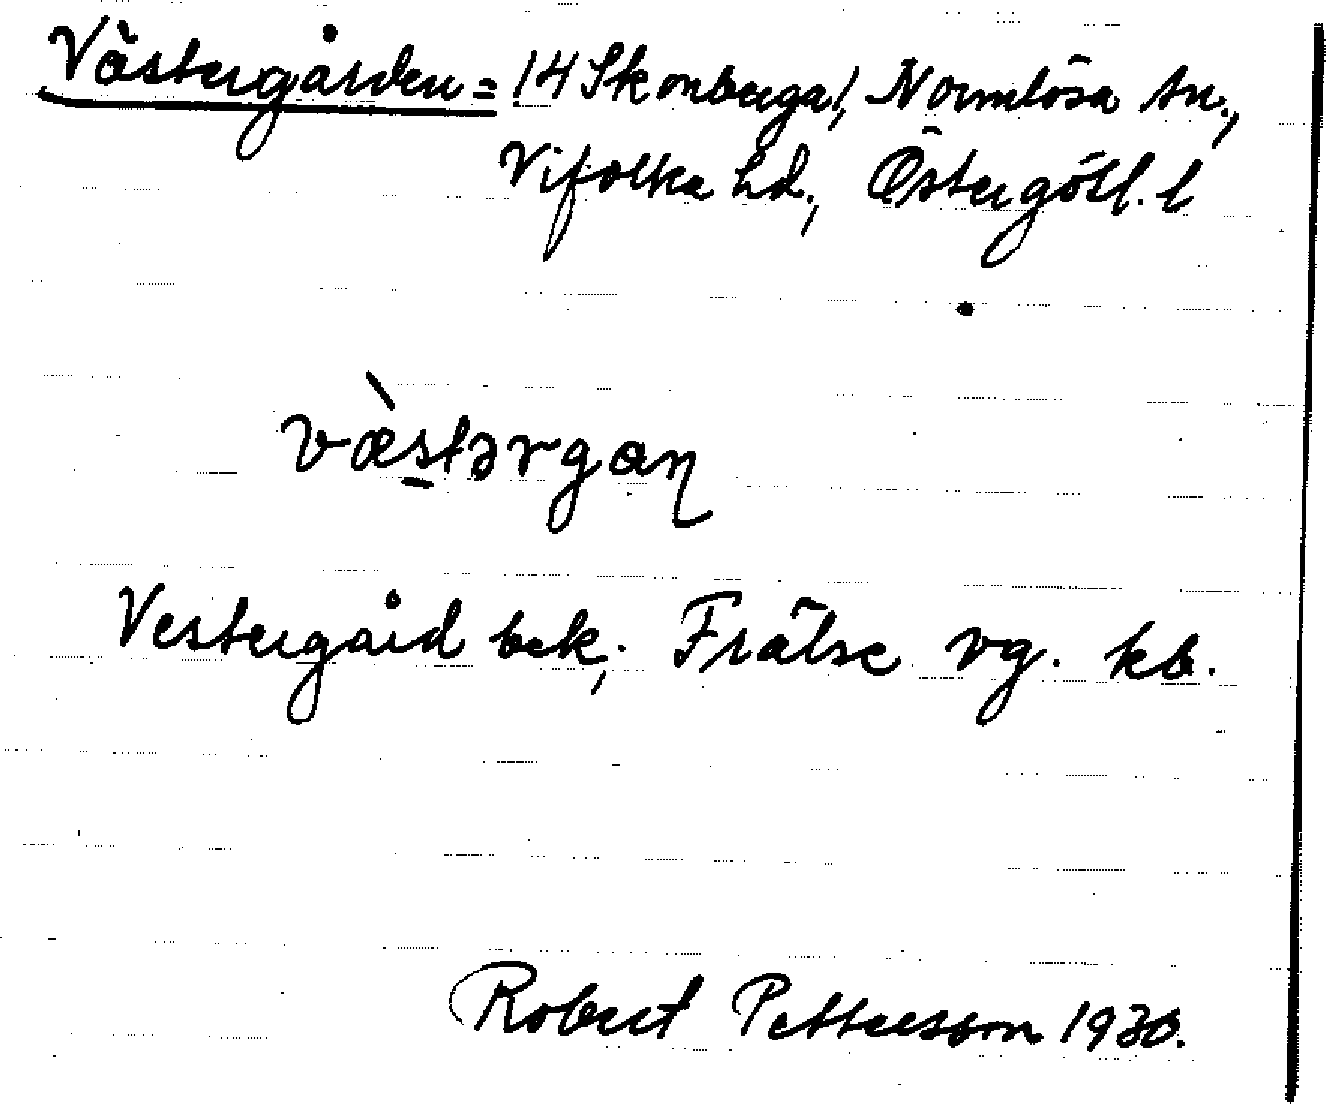 Västergården = /4 Skonberga/, Normlösa sn.,
Vifolka hd., Östergötl. l
væ̀stərgaɳ
Vestergård bek,. Frälse vg. kb.
Robert Pettersson 1930.